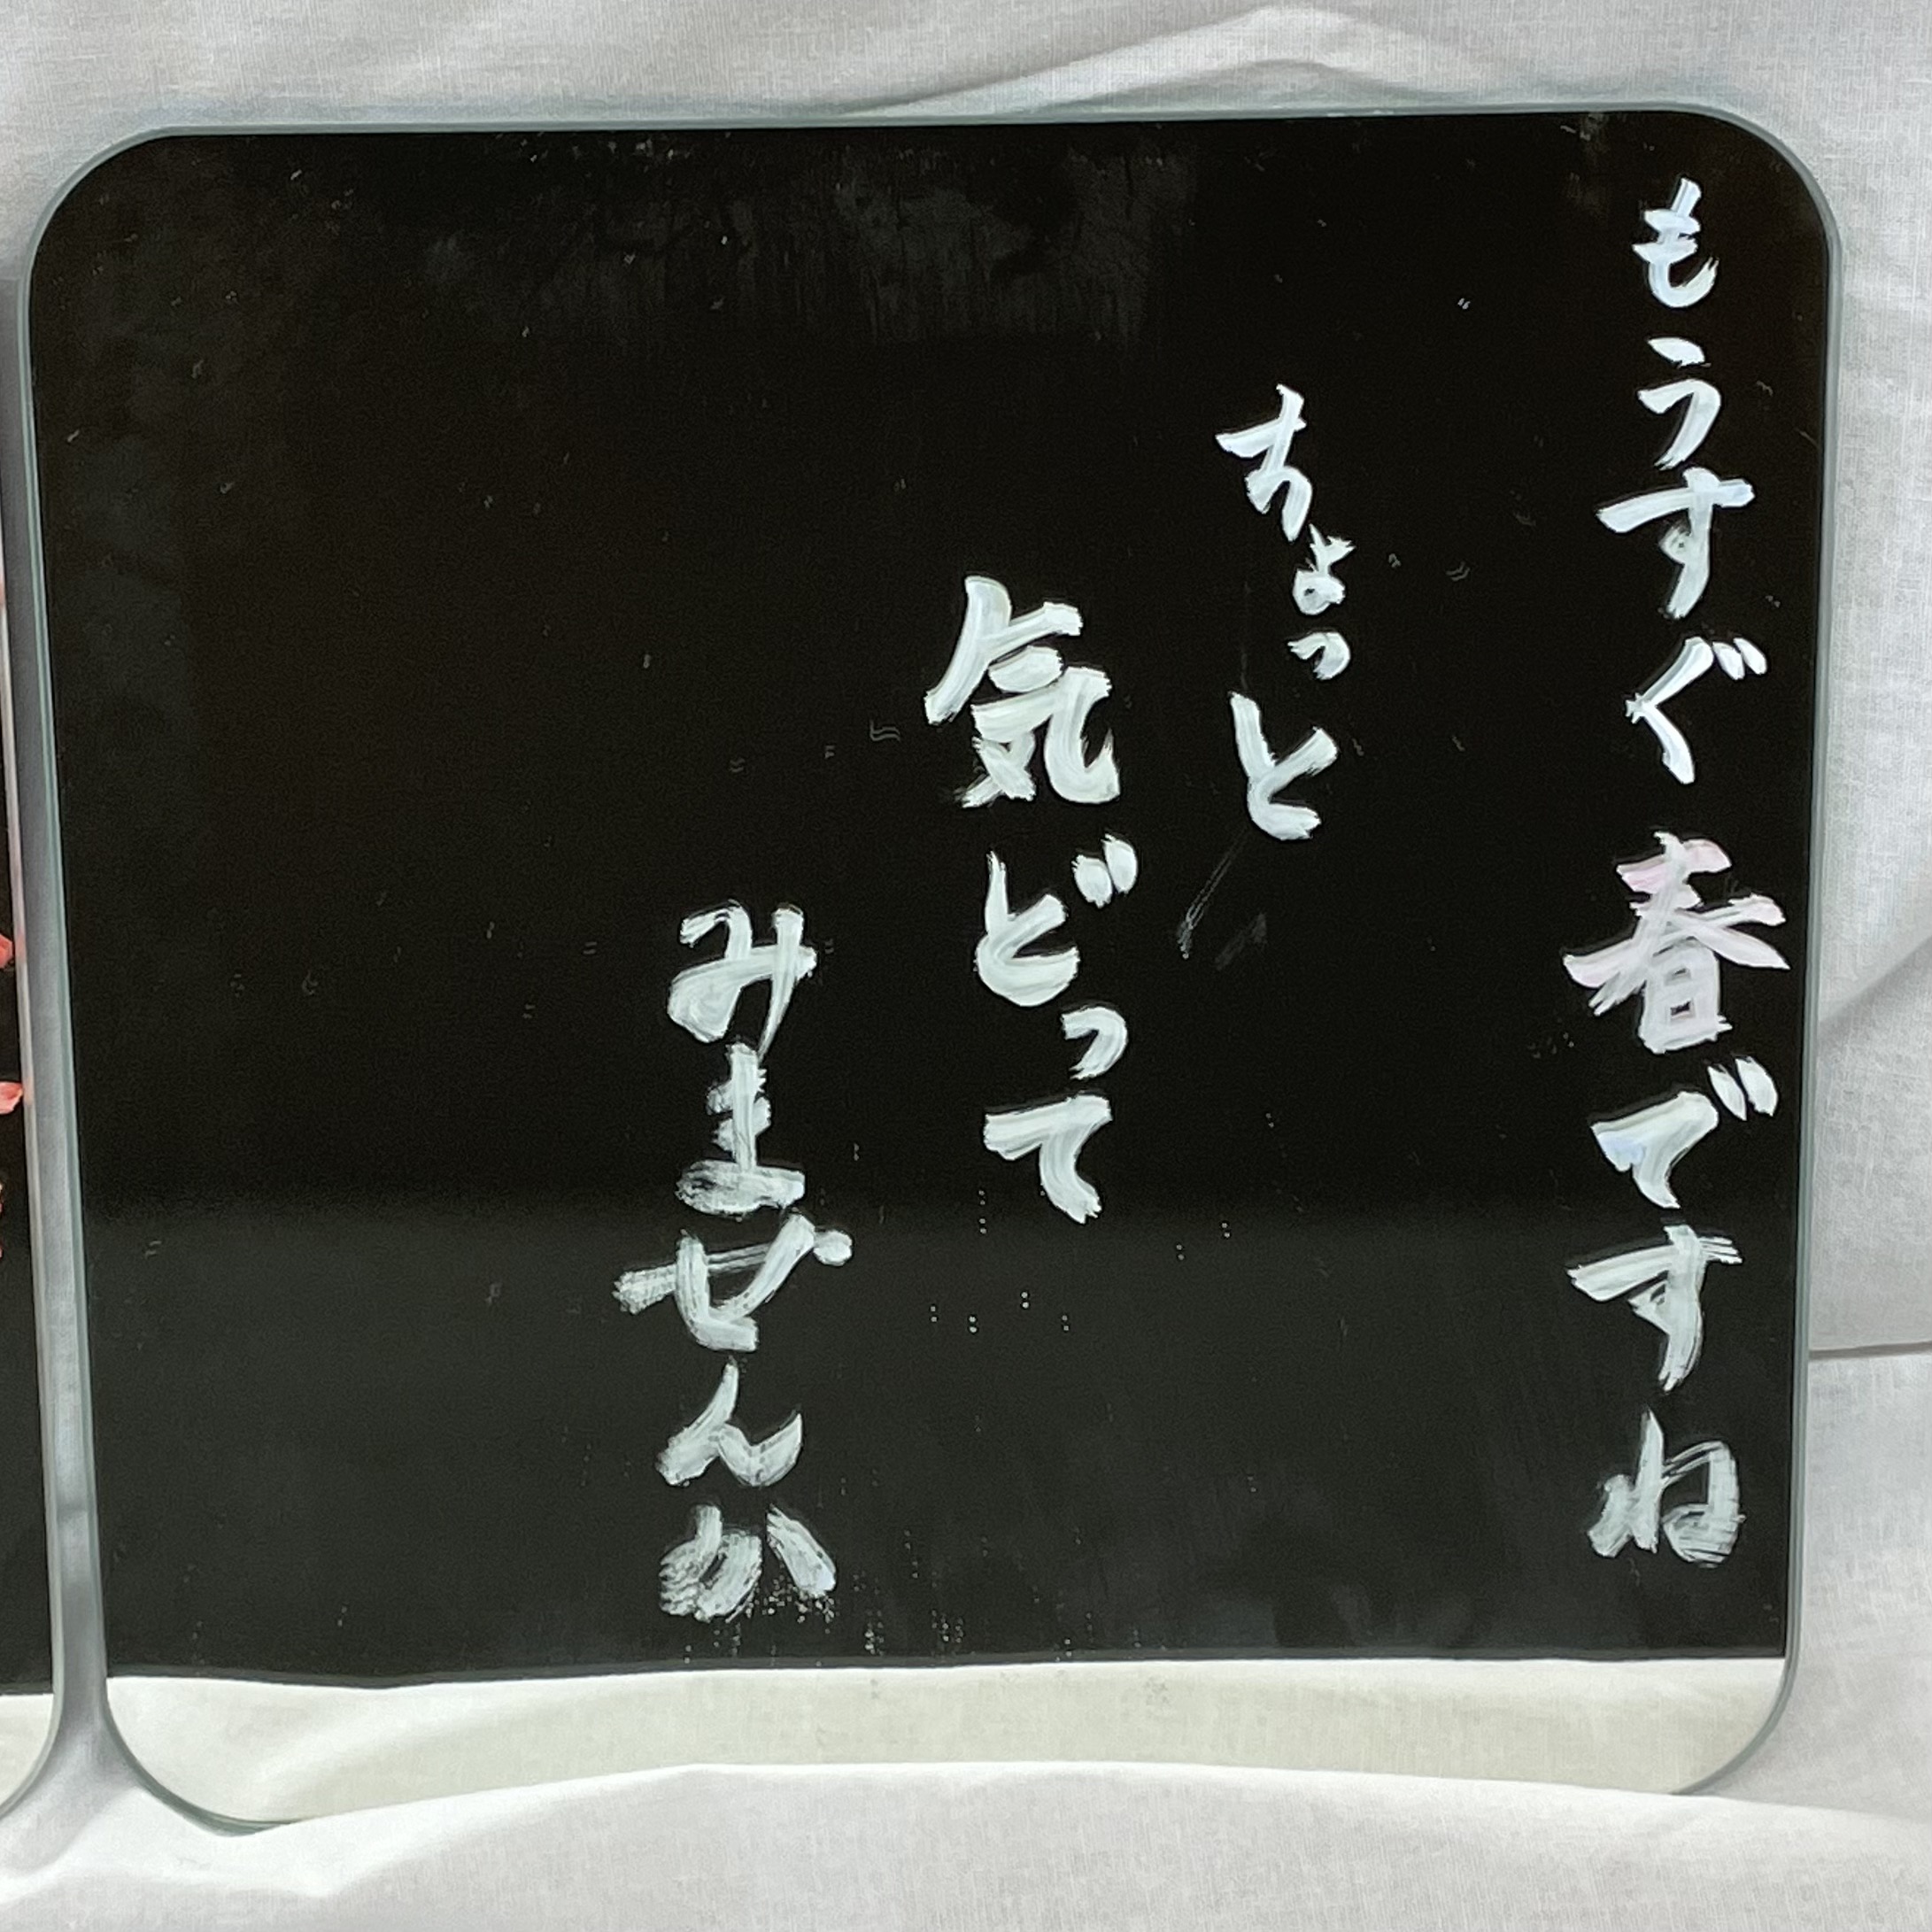 もうすぐ春ですね
ちょっと
気どって
みませんか